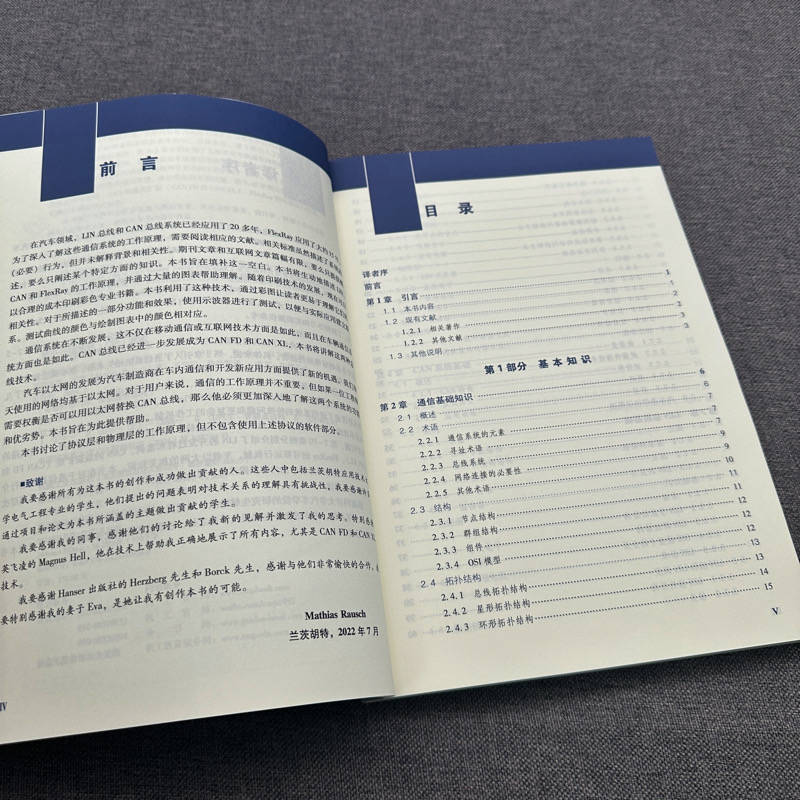 前 言
在汽车领域，LIN 总线和 CAN 总线系统已经应用了 20 多年，FlexRay 应用了大约 15 年
为了深入了解这些通信系统的工作原理，需要阅读相应的文献。相关标准虽然描述了系统的
（必要）行为，但并未解释背景和相关性。期刊文章和互联网文章篇幅有限，要么只能
述，要么只阐述某个特定方面的知识。本书旨在填补这一空白。本书将生动地描述 LIN、
CAN 和 FlexRay 的工作原理，并通过大量的图表帮助理解。随着印刷技术的发展，现在可以
以合理的成本印刷彩色专业书籍。本书利用了这种技术，通过彩图让读者更易于理解
相关性。对于所描述的一部分功能和效果，使用示波器进行了测试，以便与实际应用建立联
系。测试曲线的颜色与绘制图表中的颜色相对应。
通信系统在不断发展，这不仅在移动通信或互联网技术方面是如此，而且在车辆通信系
统方面也是如此。CAN 总线已经进一步发展成为 CAN FD 和 CAN XL，本书将讲解这两种总
线技术。
车载以太网的发展为汽车制造商在车内通信和开发新应用方面提供了新的机遇。我们
天使用的网络均基于以太网。对于用户来说，通信的工作原理并不重要，但如果一位工程师
需要权衡是否可以用以太网替换 CAN 总线，那么他必须更加深入地了解这两个系统的功能
和优劣势。本书旨在为此提供帮助。
本书讨论了协议层和物理层的工作原理，但不包含使用上述协议的软件部分。
■致谢
我要感谢所有为这本书的创作和成功做出贡献的人。这些人中包括兰茨胡特应用技术大
学电气工程专业的学生，他们提出的问题表明对技术关系的理解具有挑战性，我要感谢
通过项目和论文为本书所涵盖的主题做出贡献的学生。
我要感谢我的同事，感谢他们的讨论给了我新的见解并激发了我的思考。特别感
英飞凌的 Magnus Hell，他在技术上帮助我正确地展示了所有内容，尤其是 CAN FD 和 CAN XL
技术。
我要感谢 Hanser 出版社的 Herzberg 先生和 Borck 先生，感谢与他们非常愉快的合作。
要特别感谢我的妻子 Eva，是她让我有创作本书的可能。
Mathias Rausch
兰茨胡特，2022 年 7 月
IV
目 录
译者序
前言
第 1 章 引言 1
1.1 本书内容 1
1.2 现有文献 2
1.2.1 相关著作 2
1.2.2 其他文献 3
1.3 其他说明 3
第 1 部分 基 本 知 识
第 2 章 通信基础知识 6
2.1 概述 6
2.2 术语 7
2.2.1 通信系统的元素 7
2.2.2 寻址术语 7
2.2.3 总线系统 9
2.2.4 网络连接的必要性 9
2.2.5 其他术语 10
2.3 结构 11
2.3.1 节点结构 11
2.3.2 群组结构 11
2.3.3 组件 12
2.3.4 OSI 模型 12
2.4 拓扑结构 13
2.4.1 总线拓扑结构 13
2.4.2 星形拓扑结构 14
2.4.3 环形拓扑结构 15
V